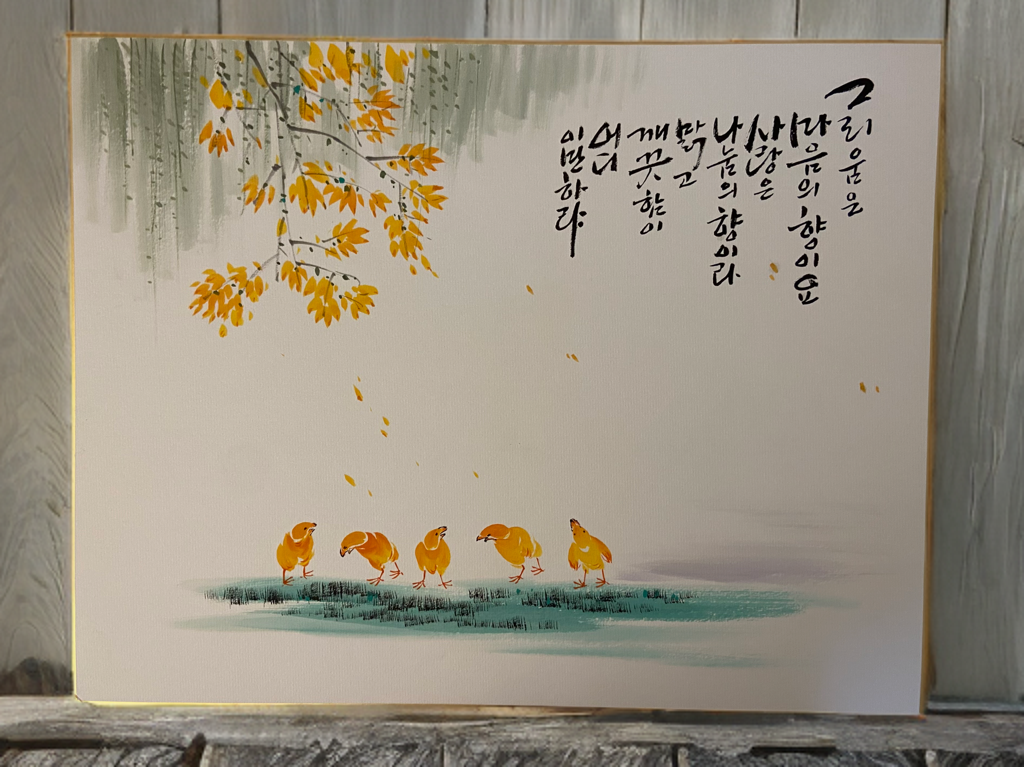 그리움은
마음의 향이요
사랑은
나눔의 향이라
맑고
깨끗함이
어디
이만하랴